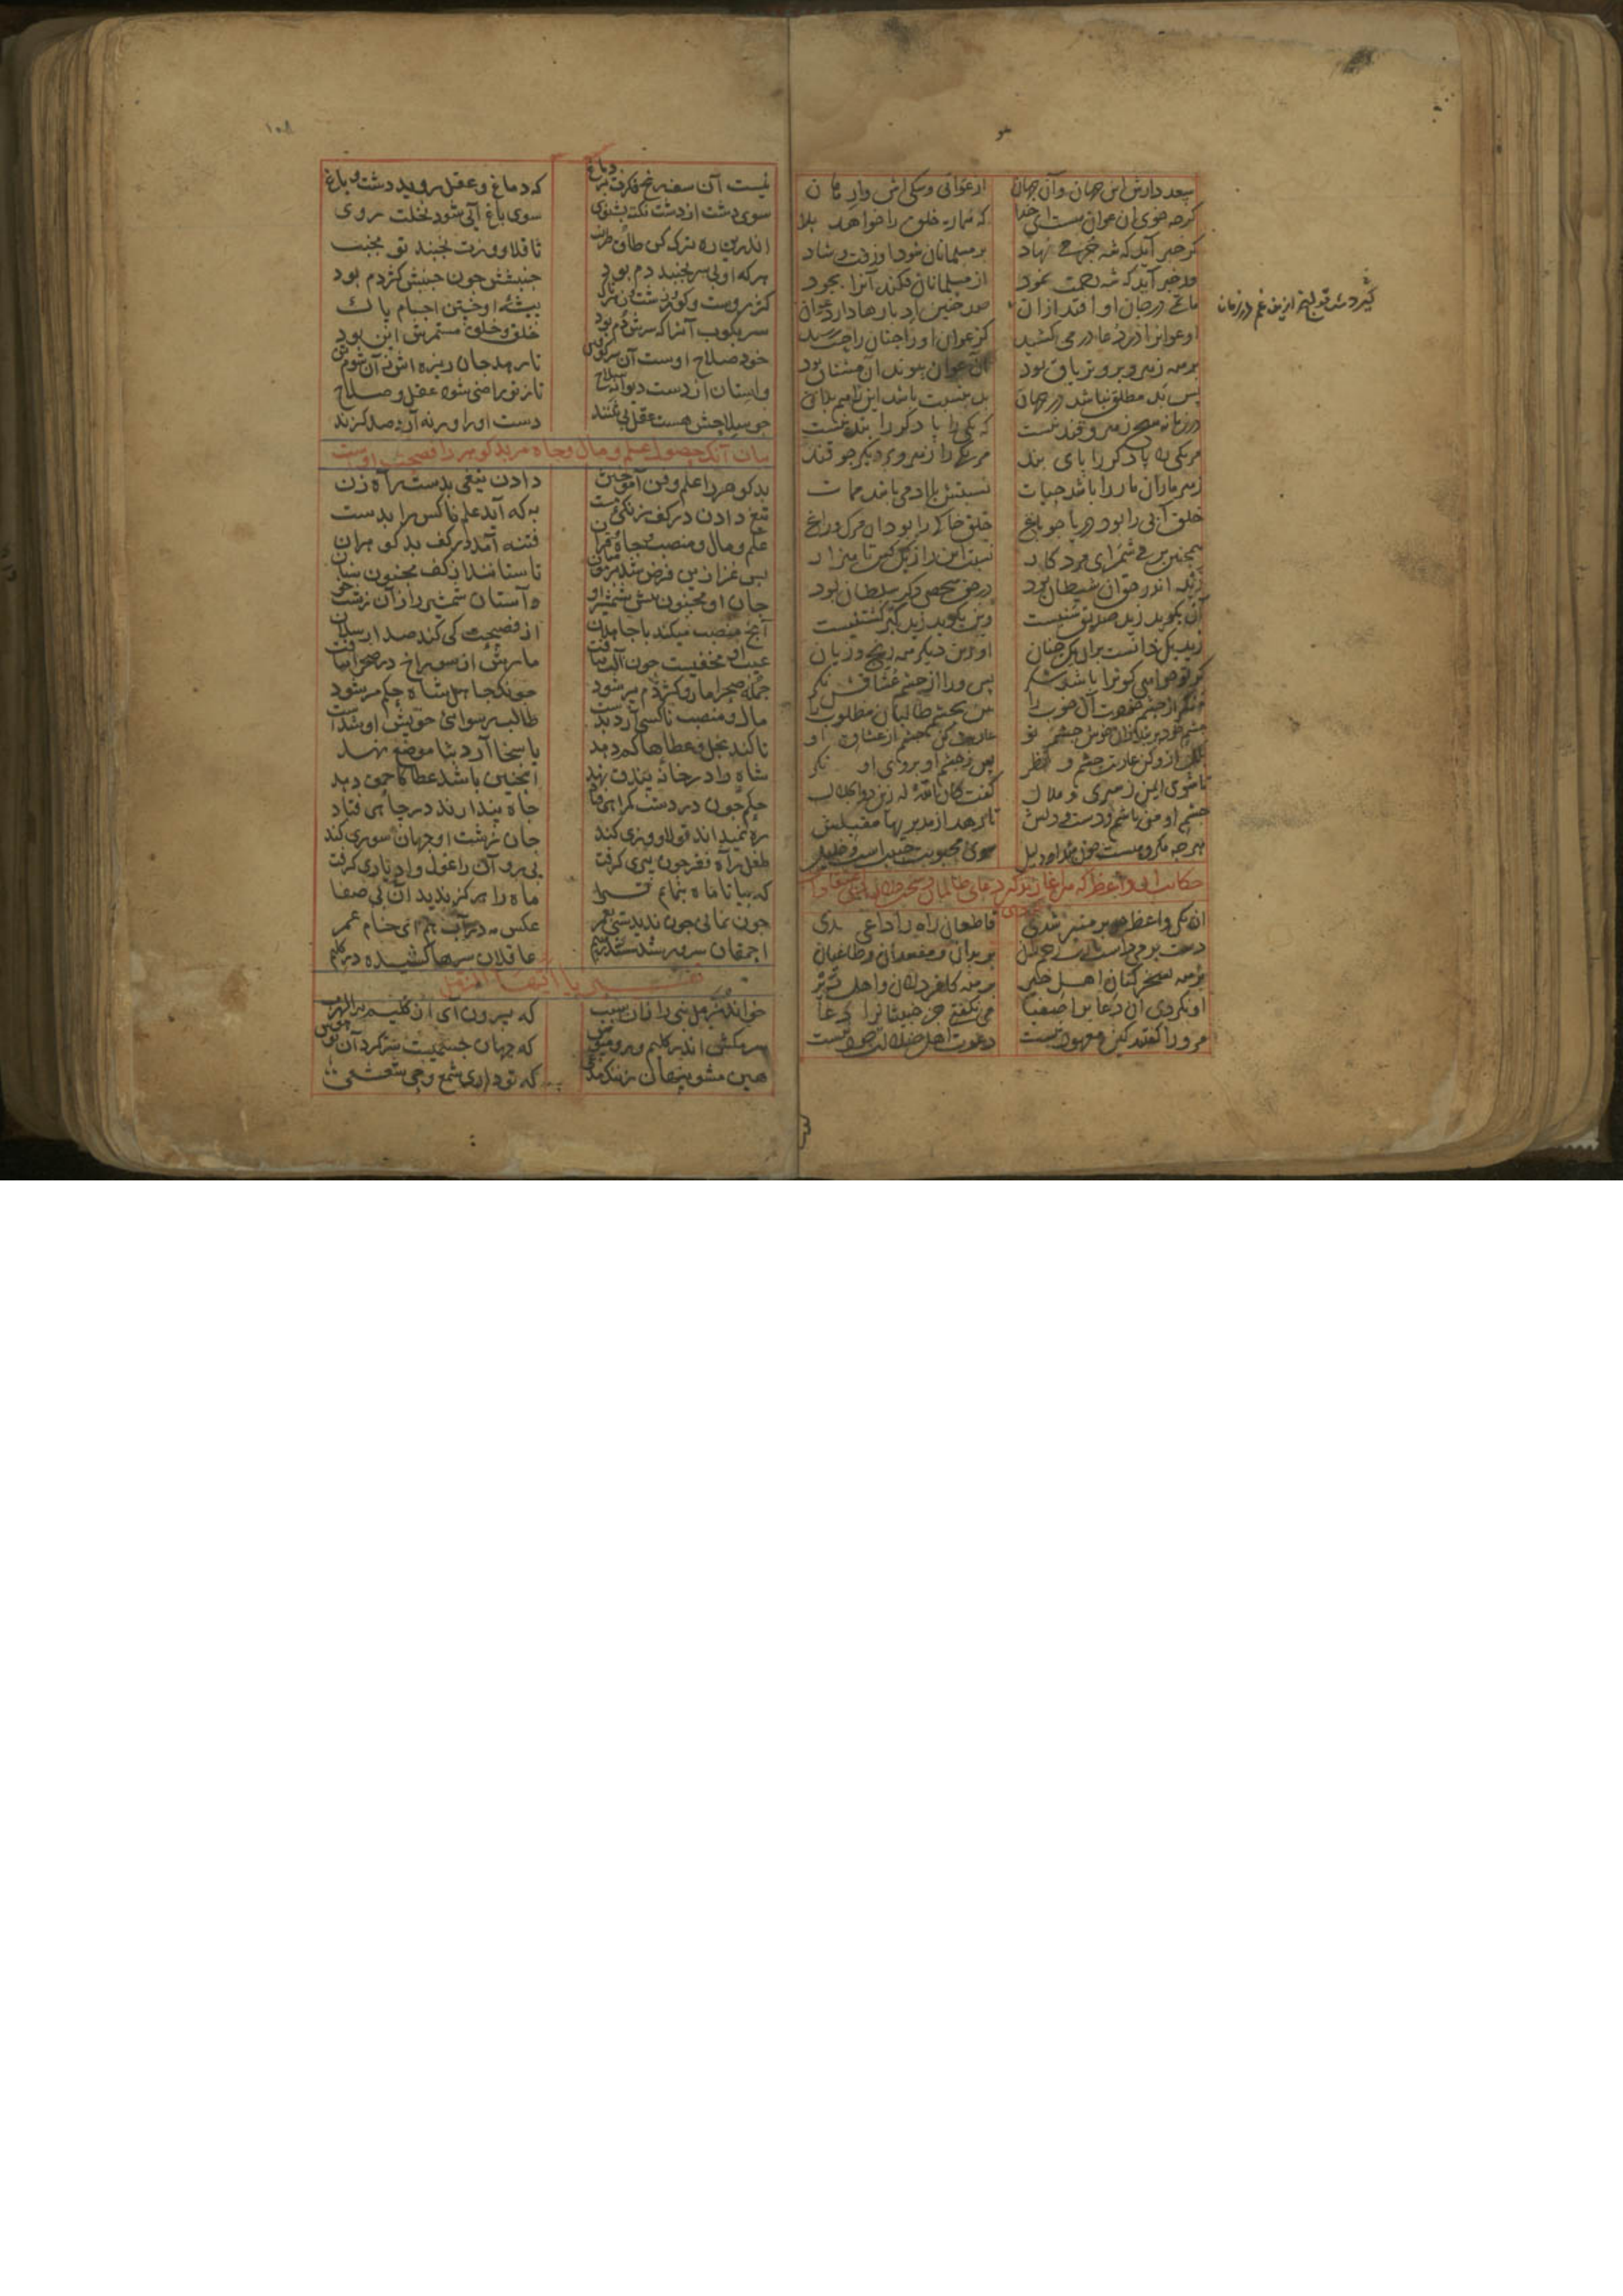 سعد دارش این جهان و آن جهان از عوانی و سگی اش وارهان
گرچه خوی آن عوان هست ای خدا که هماره خلق را خواهد بلا
گر خبر آید که شه جرمی نهاد بر مسلمانان شود او زفت و شاد
ور خبر آید که شه رحمت نمود از مسلمانان فکند آنرا بجود
ماتمی در جان او افتد ازان صد چنین ادبارها دارد عوان
گیردش قولنج ازین غم در زمان
او عوانرا در دعا در می کشید کز عوان او را چنان راحت رسید
بر همه زهر و برو تریاق بود آن عوان پیوند آن مشتاق بود
پس بد مطلق نباشد در جهان بد بنسبت باشد این را هم بدان
در زمانه هیچ زهر و قند نیست که یکی را پا دگر را بند نیست
مر یکی را پا دگر را پای بند مر یکی را زهر و بر دیگر چو قند
زهر مار آن مار را باشد حیات نسبتش با آدمی باشد ممات
خلق آبی را بود دریا چو باغ خلق خاکی را بود آن مرگ و داغ
همچنین بر می شمر ای مرد کار نسبت این از یکی کس تا هزار
زید اندر حق آن شیطان بود در حق شخصی دگر سلطان بود
آن بگوید زید صدیق سنیست وین بگوید زید گبر کشتنیست
زید یک ذاتست بر آن یک جنان او برین دیگر همه رنج و زیان
گر تو خواهی کو ترا باشد شکر پس ورا از چشم عشاقش نگر
منگر از چشم خودت آن خوب را بین بچشم طالبان مطلوب را
چشم خود بر بند زان خوش چشم تو عاریت کن چشم از عشاق او
بلک ازو کن عاریت چشم و نظر پس ز چشم او بروی او نگر
تا شوی ایمن ز سیری و ملال گفت کان الله له زین ذوالجلال
چشم او من باشم و دست و دلش تا رهد از مدبریها مقبلش
هر چه مکروهست چون شد او دلیل سوی محبوبت حبیب است و خلیل
حکایت آن واعظ که هر آغاز تذکیر دعای ظالمان و سخت دلان
آن یکی واعظ چو بر منبر شدی قاطعان راه را داعی شدی
دست بر می داشت یا رب رحم ران بر بدان و مفسدان و طاغیان
بر همه تسخر کنان اهل خیر بر همه کافر دلان و اهل دیر
او نکردی آن دعا بر اصفیا می نکفتی جز خبیثانرا دعا
مر ورا گفتند کین معهود نیست دعوت اهل ضلالت جود نیست
نیست آن سو رنج فکرت بر دماغ که دماغ و عقل روید دشت و باغ
سوی دشت از دشت نکته بشنوی سوی باغ آیی شود نخلت روی
اندرین ره ترک کن طاق و طرنب تا قلاووزت نجنبد تو مجنب
هر که او بی سر بجنبد دم بود جنبشش چون جنبش کژدم بود
کژ رو و شب کور و زشت و زهرناک پیشه او خستن اجسام پاک
سر بکوب آنرا که سرش این بود خلق و خلق مستمرش این بود
خود صلاح اوست آن سر کوفتن تا رهد جان ریزه اش زان شوم تن
واستان از دست دیوانه سلاح تا ز تو راضی شود عقل و صلاح
چون سلاحش هست عقلش نی ببند دست او را ورنه آرد صد گزند
بیان آنکه حصول علم و مال و جاه مر بد گوهر را فضیحت اوست
بد گهر را علم و فن آموختن دادن تیغی بدست راه زن
تیغ دادن در کف زنگی مست به که آید علم ناکس را بدست
علم و مال و منصب و جاه و قران فتنه آمد در کف بد گوهران
پس غزا زین فرض شد بر مؤمنان تا ستانند از کف مجنون سنان
جان او مجنون تنش شمشیر او واستان شمشیر را زان زشت خو
آنچ منصب میکند با جاهلان از فضیحت کی کند صد ارسلان
عیب او مخفیست چون آلت بیافت مارش از سوراخ در صحرا شتافت
جمله صحرا مار و کژدم پر شود چونک جاهل شاه حکم مر شود
مال و منصب ناکسی کآرد بدست طالب رسوایی خویش او شدست
یا کند بخل و عطاها کم دهد یا سخا آرد بنا موضع نهد
شاه را در خانه بیذق نهد اینچنین باشد عطا کاحمق دهد
حکم چون در دست گمراهی فتاد جاه پندارند در چاهی فتاد
ره نمیداند قلاووزی کند جان زشت او جهان سوزی کند
طفل راه فقر چون پیری گرفت پی روان را غول ادباری گرفت
که بیا تا ماه بنمایم ترا ماه را هرگز ندید آن بی صفا
چون نمایی چون ندیدستی بعمر عکس مه در آب هم ای خام غمر
احمقان سرور شدستند ز بیم عاقلان سرها کشیده در گلیم
تفسیر یا ایها المزمل
خواند مزمل نبی را زان سبب که برون آی از گلیم ای بوالهرب
سر مکش اندر گلیم و رو مپوش که جهان جسمیست سرگردان تو هوش
هین مشو پنهان ز ننگ مدعی که تو داری شمع وحی شعشعی